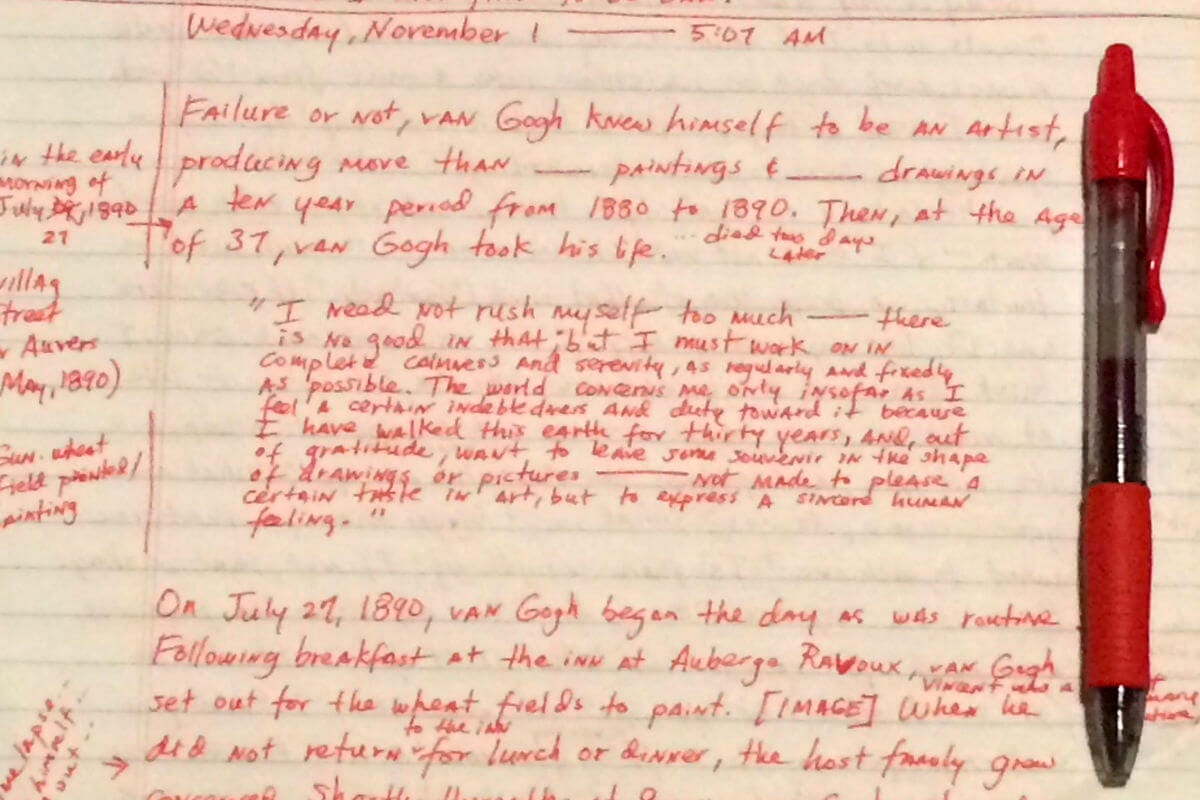 Wednesday, November 1 —— 5:07 AM
Failure or not, van Gogh knew himself to be an artist,
producing more than ___ paintings & ___ drawings in
a ten year period from 1880 to 1890. Then, at the age
of 37, van Gogh took his life. ... died two days
later
in the early
morning of
July, 1890
27
villag
treet
Auvers
May, 1890)
"I need not rush myself too much —— there
is no good in that; but I must work on in
complete calmness and serenity, as regularly and fixedly
as possible. The world concerns me only insofar as I
feel a certain indebtedness and duty toward it because
I have walked this earth for thirty years, and, out
of gratitude, want to leave some souvenir in the shape
of drawings or pictures —— not made to please a
certain taste in art, but to express a sincere human
feeling."
Sun. wheat
field painted/
painting
On July 27, 1890, van Gogh began the day as was routine
Following breakfast at the inn at Auberge Ravoux, van Gogh
Vincent was a
set out for the wheat fields to paint. [IMAGE] When he
to the inn
did not return for lunch or dinner, the host family grew
lapse...
himself...
out...